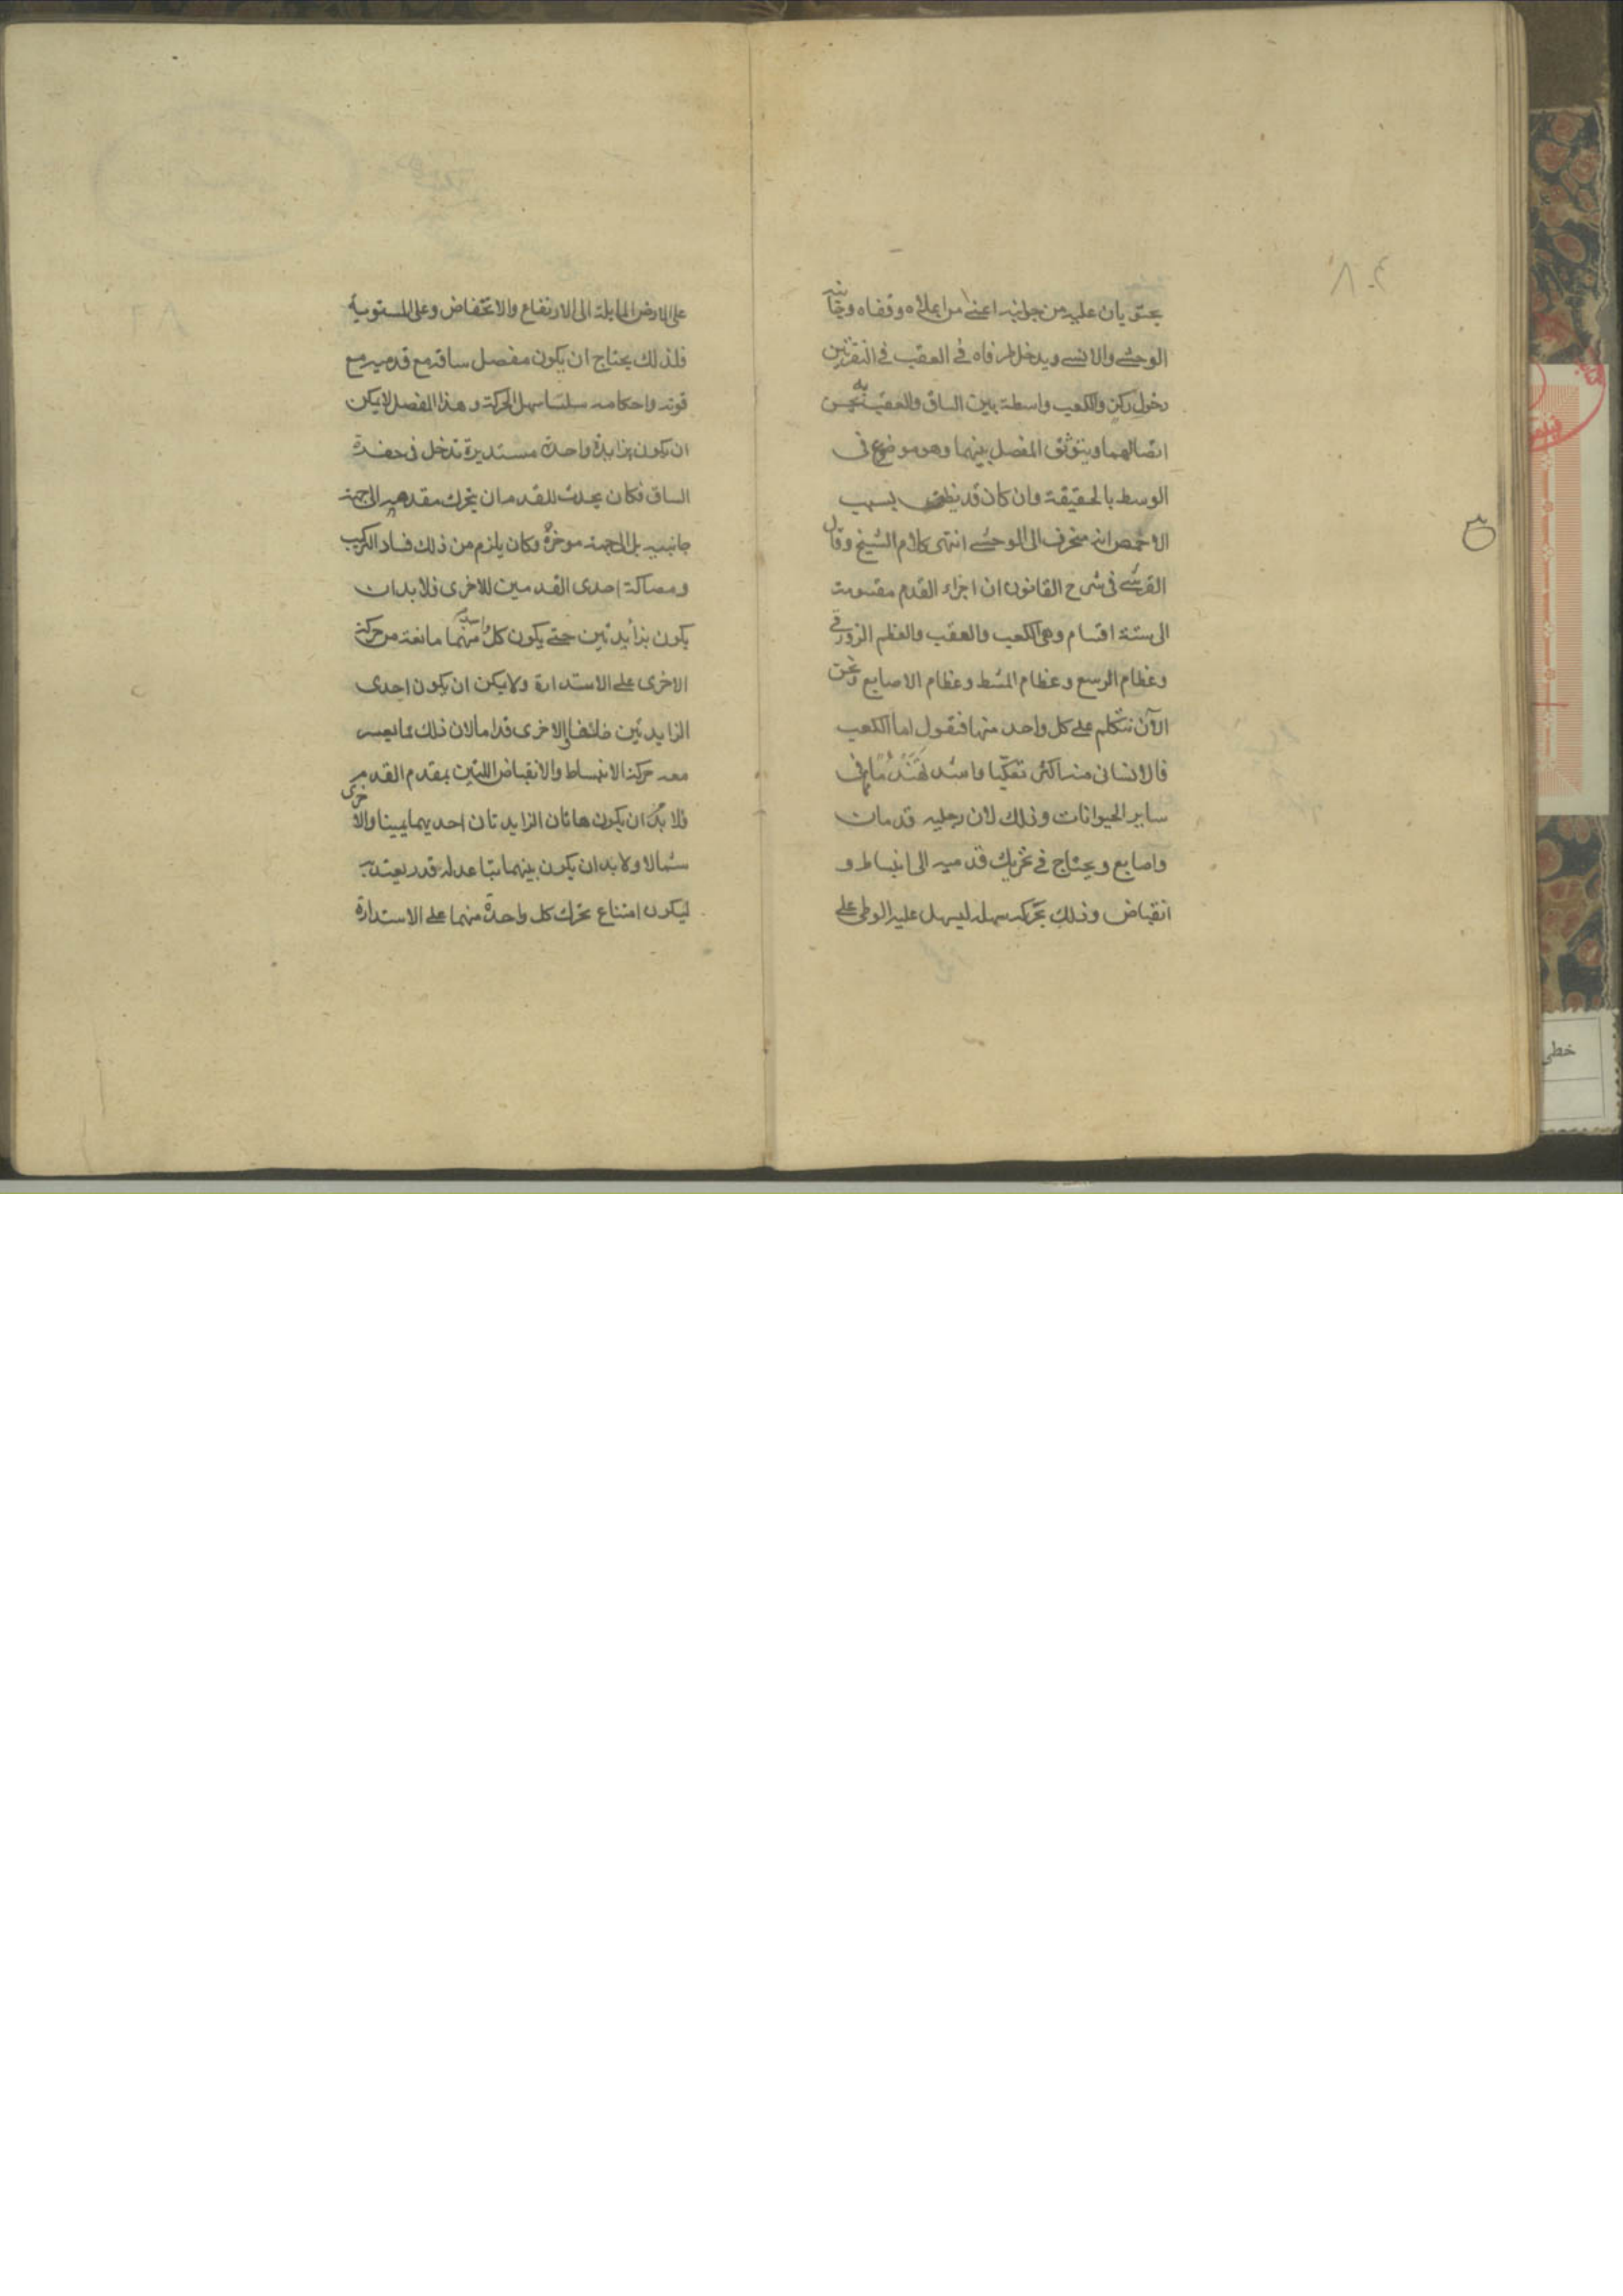 يحتويان عليه من جوانبه اعني من اعلاه وقفاه وجانبيه
الوحشي والانسي ويدخل طرفاه في العقب في النقرتين
دخول ركن والكعب واسطة بين الساق والعقب به يحسن
اتصالهما ويتوثق المفصل بينهما وهو موضوع في
الوسط بالحقيقة وان كان قد يظن بسبب
الاخمص انه منحرف الى الوحشي انتهى كلام الشيخ وقال
القرشي في شرح القانون ان اجزاء القدم مقسومة
الى ستة اقسام وهي الكعب والعقب والعظم الزورقي
وعظام الرسغ وعظام المشط وعظام الاصابع ونحن
الآن نتكلم على كل واحد منها فنقول اما الكعب
فالانساني منه اكثر تكعيبا واشد تهندما مما في
ساير الحيوانات وذلك لان رجليه قدمان
واصابع ويحتاج في تحريك قدميه الى انبساط و
انقباض وذلك بحركة سهلة ليسهل عليه الوطى على
على الارض المايلة الى الارتفاع والانخفاض وعلى المستوية
فلذلك يحتاج ان يكون مفصل ساقه مع قدميه مع
قوته واحكامه سلسا سهل الحركة وهذا المفصل لا يمكن
ان يكون بزايدة واحدة مستديرة تدخل في حفرة
الساق فكان يحدث للقدم ان يتحرك مقدمه الى جهة
جانبيه بل الى جهة موخره وكان يلزم من ذلك فساد التركيب
ومصاكة احدى القدمين للاخرى فلا بد ان
يكون بزايدتين حتى يكون كل واحدة منهما مانعة من حركة
الاخرى على الاستدارة ولا يمكن ان يكون احدى
الزايدتين خلفا والاخرى قداما لان ذلك مما يعسر
معه حركة الانبساط والانقباض اللتين بمقدم القدم
فلا بد ان يكون هاتان الزايدتان احديهما يمينا والاخرى
شمالا ولا بد ان يكون بينهما تباعد له قدر يعتد به
ليكون امتناع تحرك كل واحدة منهما على الاستدارة
خطي